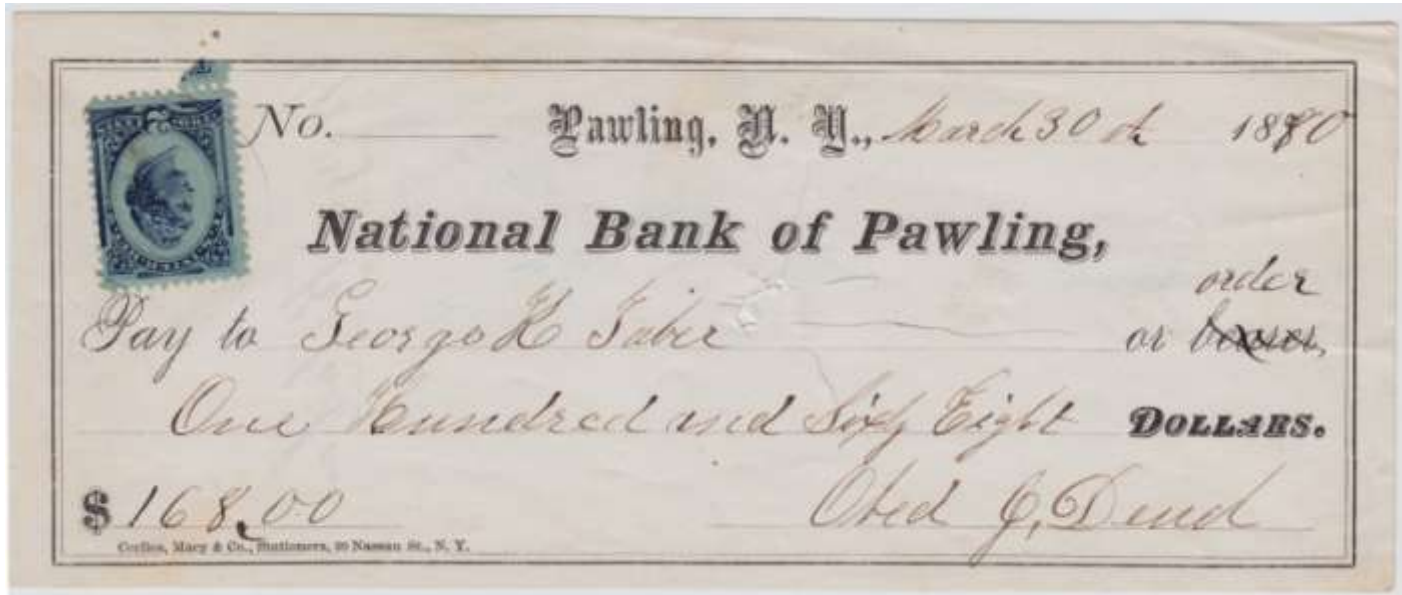 No. Pawling, N. Y., March 30th 1880
National Bank of Pawling,
order
Pay to George K Taber or bearer,
One Hundred and Sixty Eight DOLLARS.
$ 168,00 Obed J.
Corlies, Macy & Co., Stationers, 39 Nassau St., N. Y.